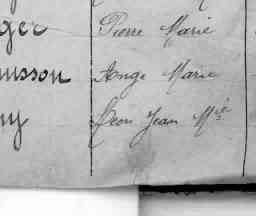 ger Pierre Marie
usson Ange Marie
ny Léon Jean Mie